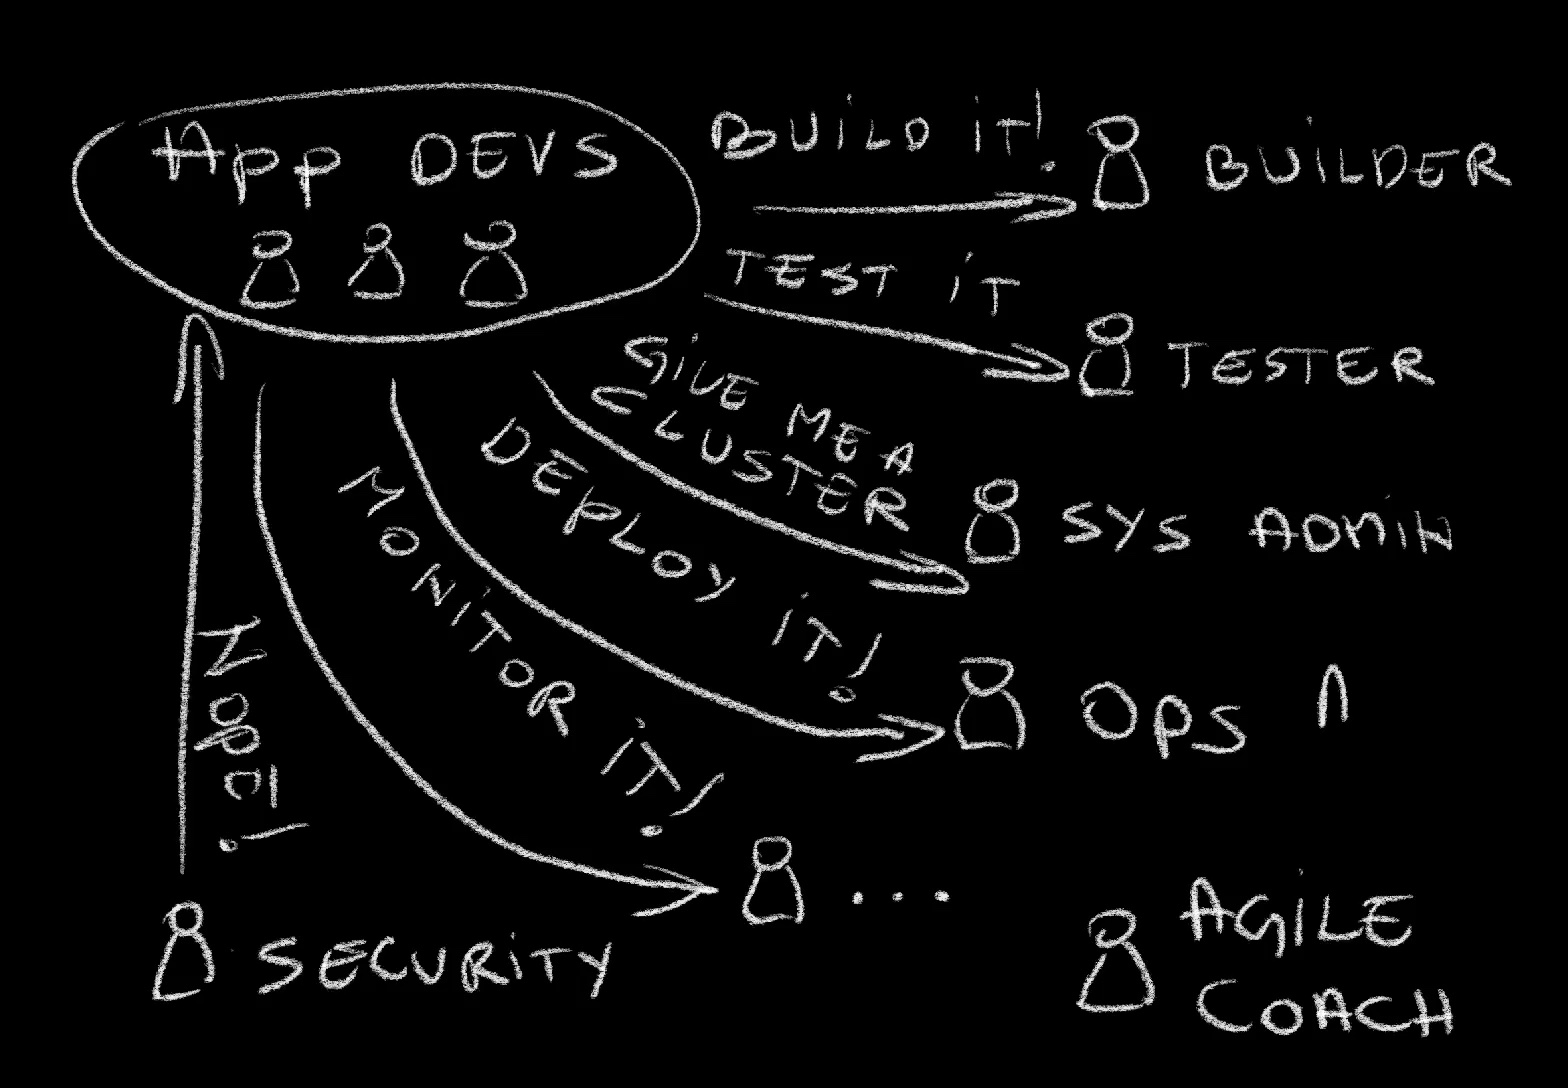 App DEVS
BUILD iT!
BUILDER
TEST iT
TESTER
GiVE ME A
CLUSTER
SYS ADMiN
DEPLOY iT!
OPS
MONiTOR iT!
...
NOPE!
SECURiTY
AGiLE
COACH